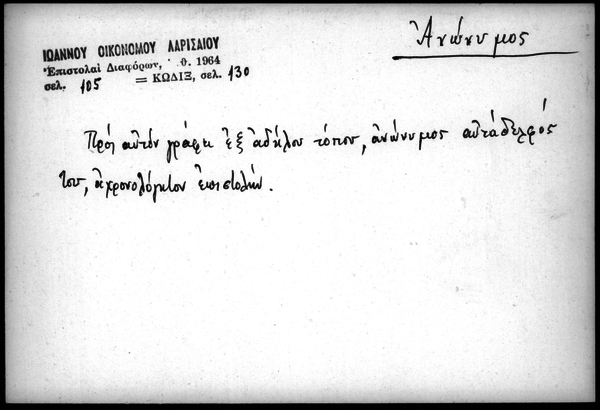 Ἀνώνυμος
ΙΩΑΝΝΟΥ ΟΙΚΟΝΟΜΟΥ ΛΑΡΙΣΑΙΟΥ
Ἐπιστολαὶ Διαφόρων, θ. 1964
σελ. 105 = ΚΩΔΙΞ, σελ. 130
Πρὸς αὐτὸν γράφει ἐξ ἀδήλου τόπου, ἀνώνυμος αὐτάδελφός
του, ἀχρονολόγητον ἐπιστολήν.